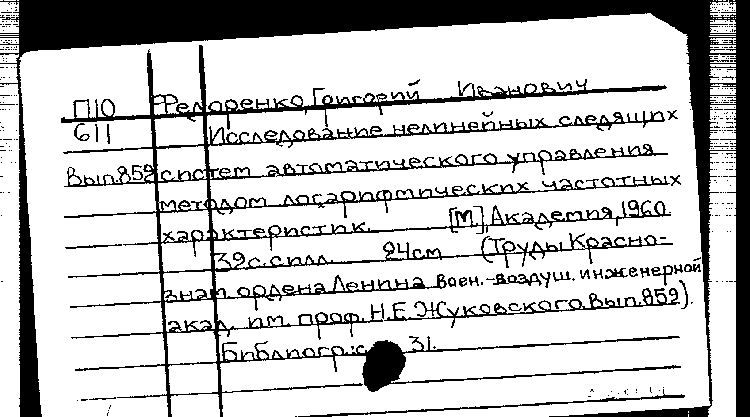 П10 Федоренко, Григорий Иванович
611 Исследование нелинейных следящих
Вып.859 систем автоматического управления
методом логарифмических частотных
характеристик. [М.], Академия, 1960
39 с. с илл. 24см (Труды Красно-
знам. ордена Ленина Воен.-воздуш. инженерной
акад. им. проф. Н.Е. Жуковского. Вып. 859).
Библиогр.: с. 31.